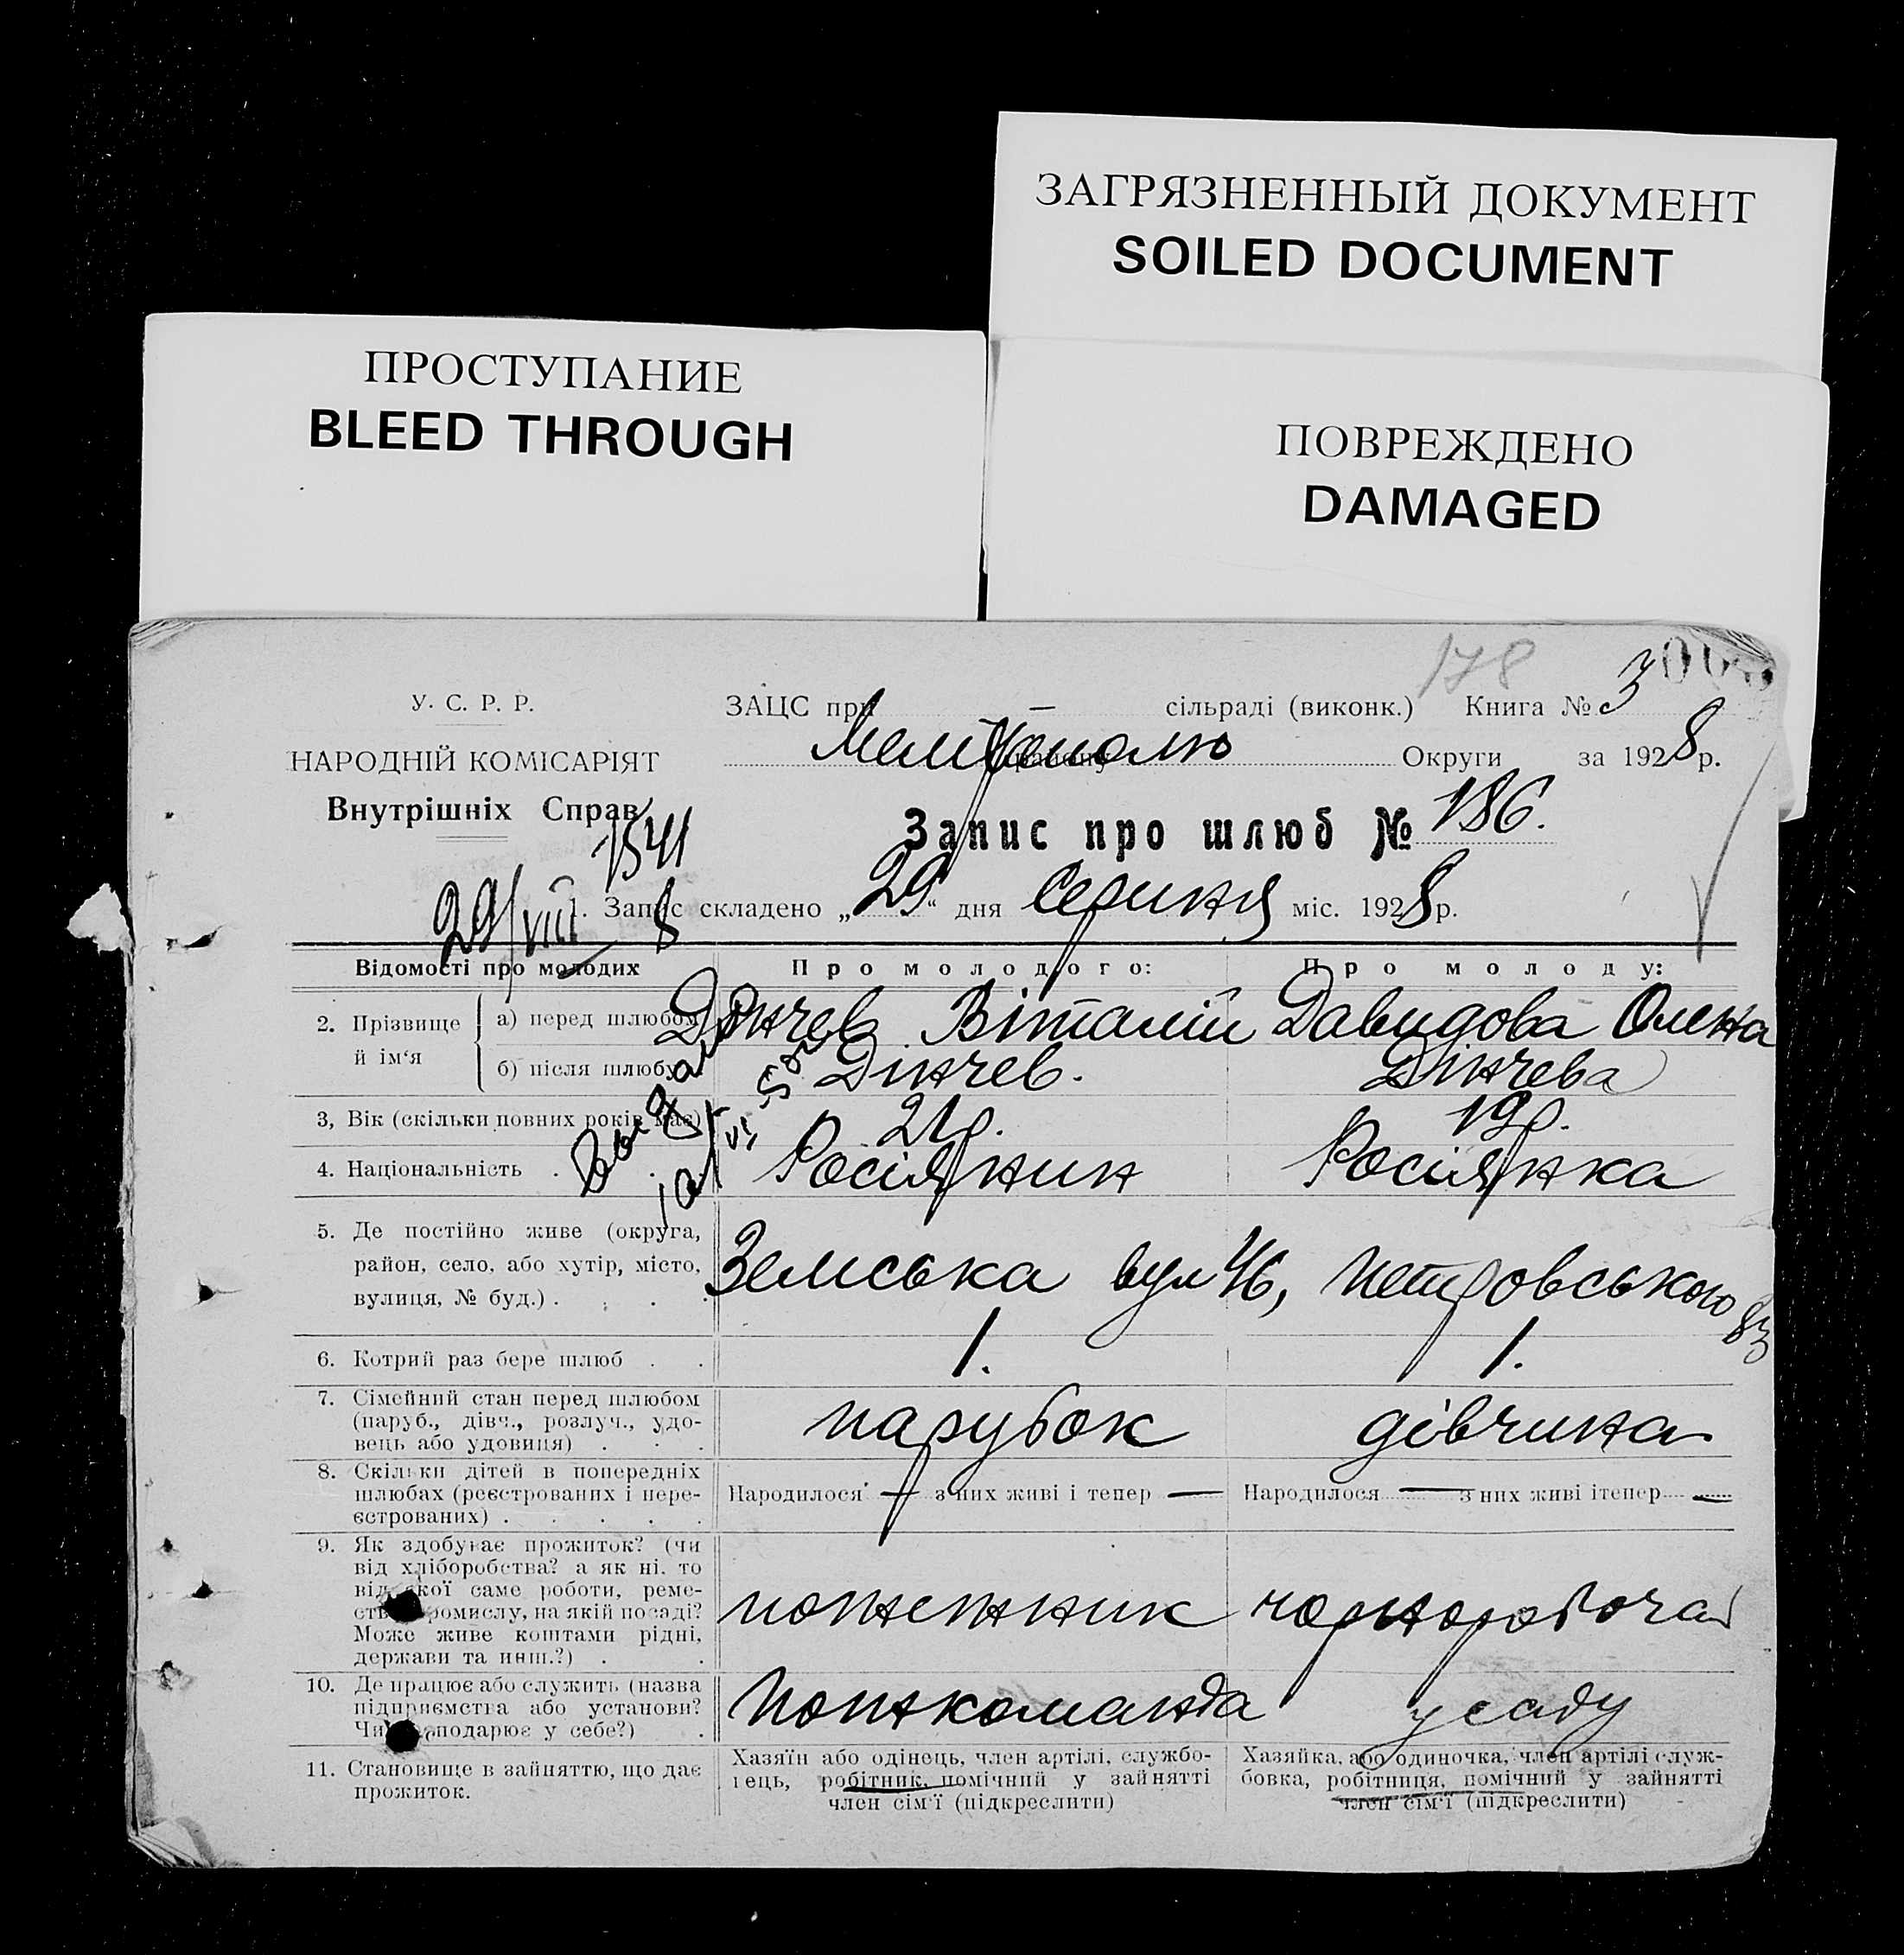 ЗАГРЯЗНЕННЫЙ ДОКУМЕНТ
SOILED DOCUMENT
ПРОСТУПАНИЕ
BLEED THROUGH
ПОВРЕЖДЕНО
DAMAGED
178
У. С. Р. Р.
НАРОДНІЙ КОМІСАРІЯТ
Внутрішніх Справ
ЗАЦС при — сільраді (виконк.) Книга № 3
Мелітополю району Округи за 1928 р.
1541
Запис про шлюб № 186.
29/VIII 8
1. Запис складено „29“ дня Серпня міс. 1928 р.
Відомості про молодих Про молодого: Про молоду:
2. Прізвище й ім‘я
а) перед шлюбом Дінчев Віталій Давидова Олена
б) після шлюбу Дінчев. Дінчева
3, Вік (скільки повних років має) 21р. 19р.
4. Національність . . Росіянин Росіянка
5. Де постійно живе (округа,
район, село, або хутір, місто,
вулиця, № буд.) . . . .
Земська вул 46, Петровського 83
6. Котрий раз бере шлюб . . 1. 1.
7. Сімейний стан перед шлюбом
(паруб., дівч., розлуч., удо-
вець або удовиця) . . .
парубок дівчина
8. Скільки дітей в попередніх
шлюбах (реєстрованих і нере-
єстрованих) . . . . .
Народилося — з них живі і тепер — Народилося — з них живі ітепер —
9. Як здобуває прожиток? (чи
від хліборобства? а як ні. то
від якої саме роботи, реме-
ства, промислу, на якій посаді?
Може живе коштами рідні,
держави та инш.?) . .
пожежник чорноробоча
10. Де працює або служить (назва
підприємства або установи?
Чи господарює у себе?) .
Пожкоманда у саду
11. Становище в зайняттю, що дає
прожиток.
Хазяїн або одінець, член артілі, службо-
вець, робітник, помічний у зайнятті
член сім‘ї (підкреслити)
Хазяйка, або одиночка, член артілі служ-
бовка, робітниця, помічний у зайнятті
член сім‘ї (підкреслити)